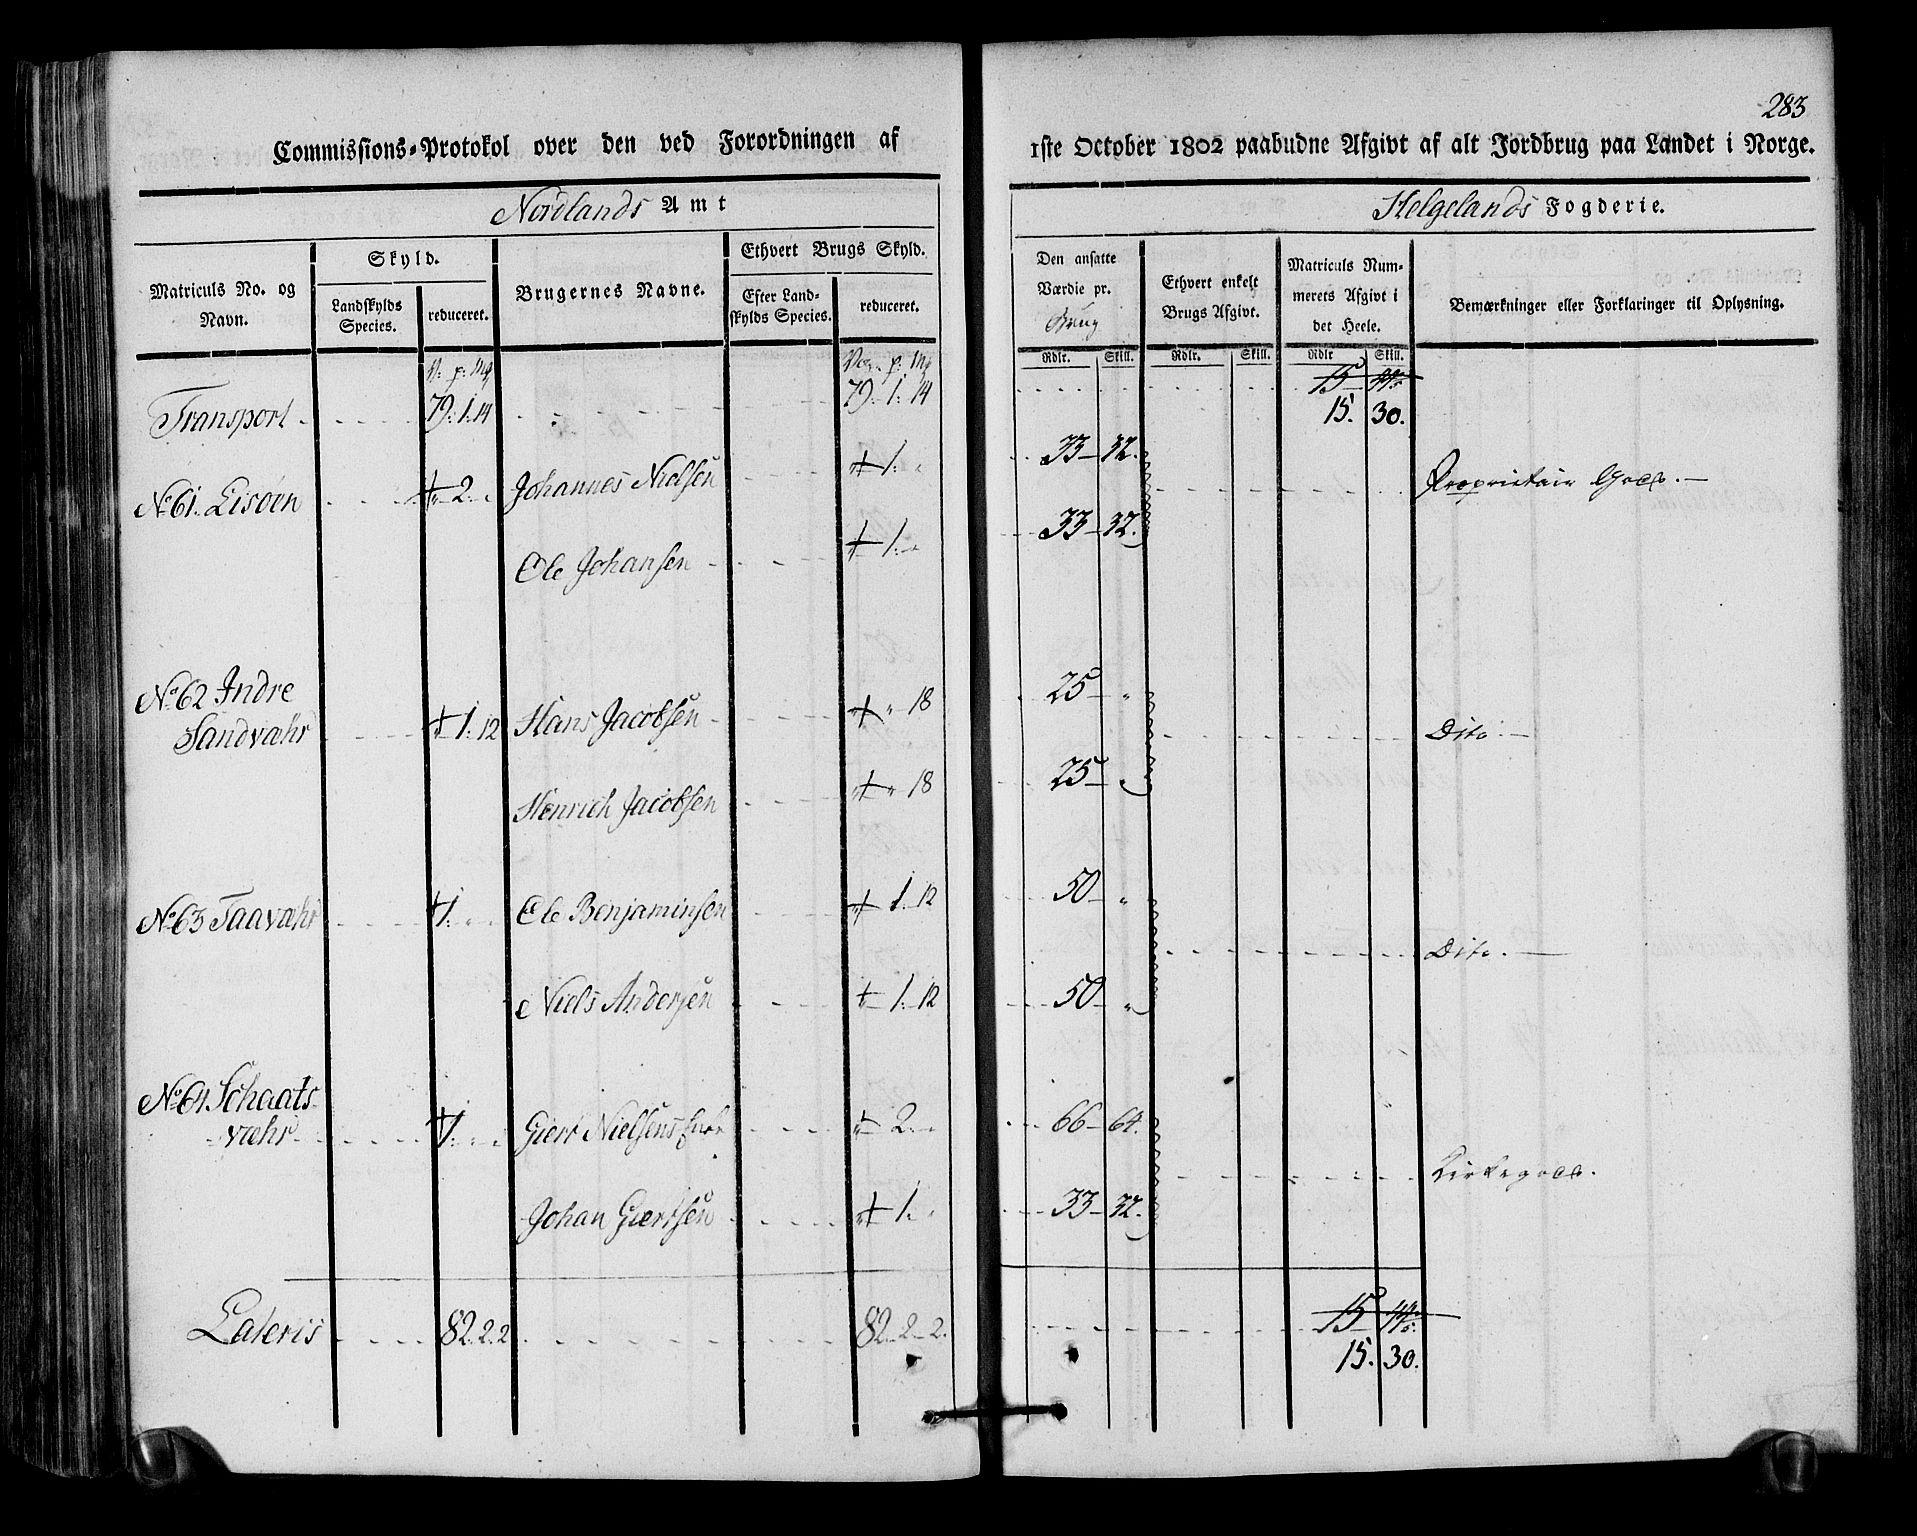 283
Commissions-Protokol over den ved Forordningen af
1ste October 1802 paabudne Afgivt af alt Jordbrug paa Landet i Norge.
Nordlands Amt
Helgelands Fogderie.
Matriculs No. og Navn.
Skyld.
Landskylds Species.
reduceret.
Brugernes Navne.
Ethvert Brugs Skyld.
Efter Landskylds Species.
reduceret.
Den ansatte Værdie pr. Brug
Ethvert enkelt Brugs Afgivt.
Matriculs Nummerets Afgivt i det Heele.
Bemærkninger eller Forklaringer til Oplysning.
V: p: Mg
Vog. p: Mg
Rdlr. Skill. Rdlr. Skill. Rdlr Skill.
Transport 79: 1: 14 79. 1: 14 15 44
15. 30.
No 61. Eisöen 2. Johannes Nielsen 1: 33 32. Proprietair Goes.
Ole Johansen 1: 33 32.
No 62 Indre
Sandvahr 1: 12 Hans Jacobsen 18 25 " Dito.
Henrich Jacobsen 18 25 "
No 63 Taavahr 1. Ole Benjaminsen 1. 12 50 " Dito.
Niels Andersen 1: 12 50 "
No 64 Schaats
væhr 1. Giert Nielsens Enke 2. 66 64. Kirkegoes.
Johan Giertsen 1: 33 32.
Lateris 82. 2. 2 82. 2. 2. 15 44.
15. 30.